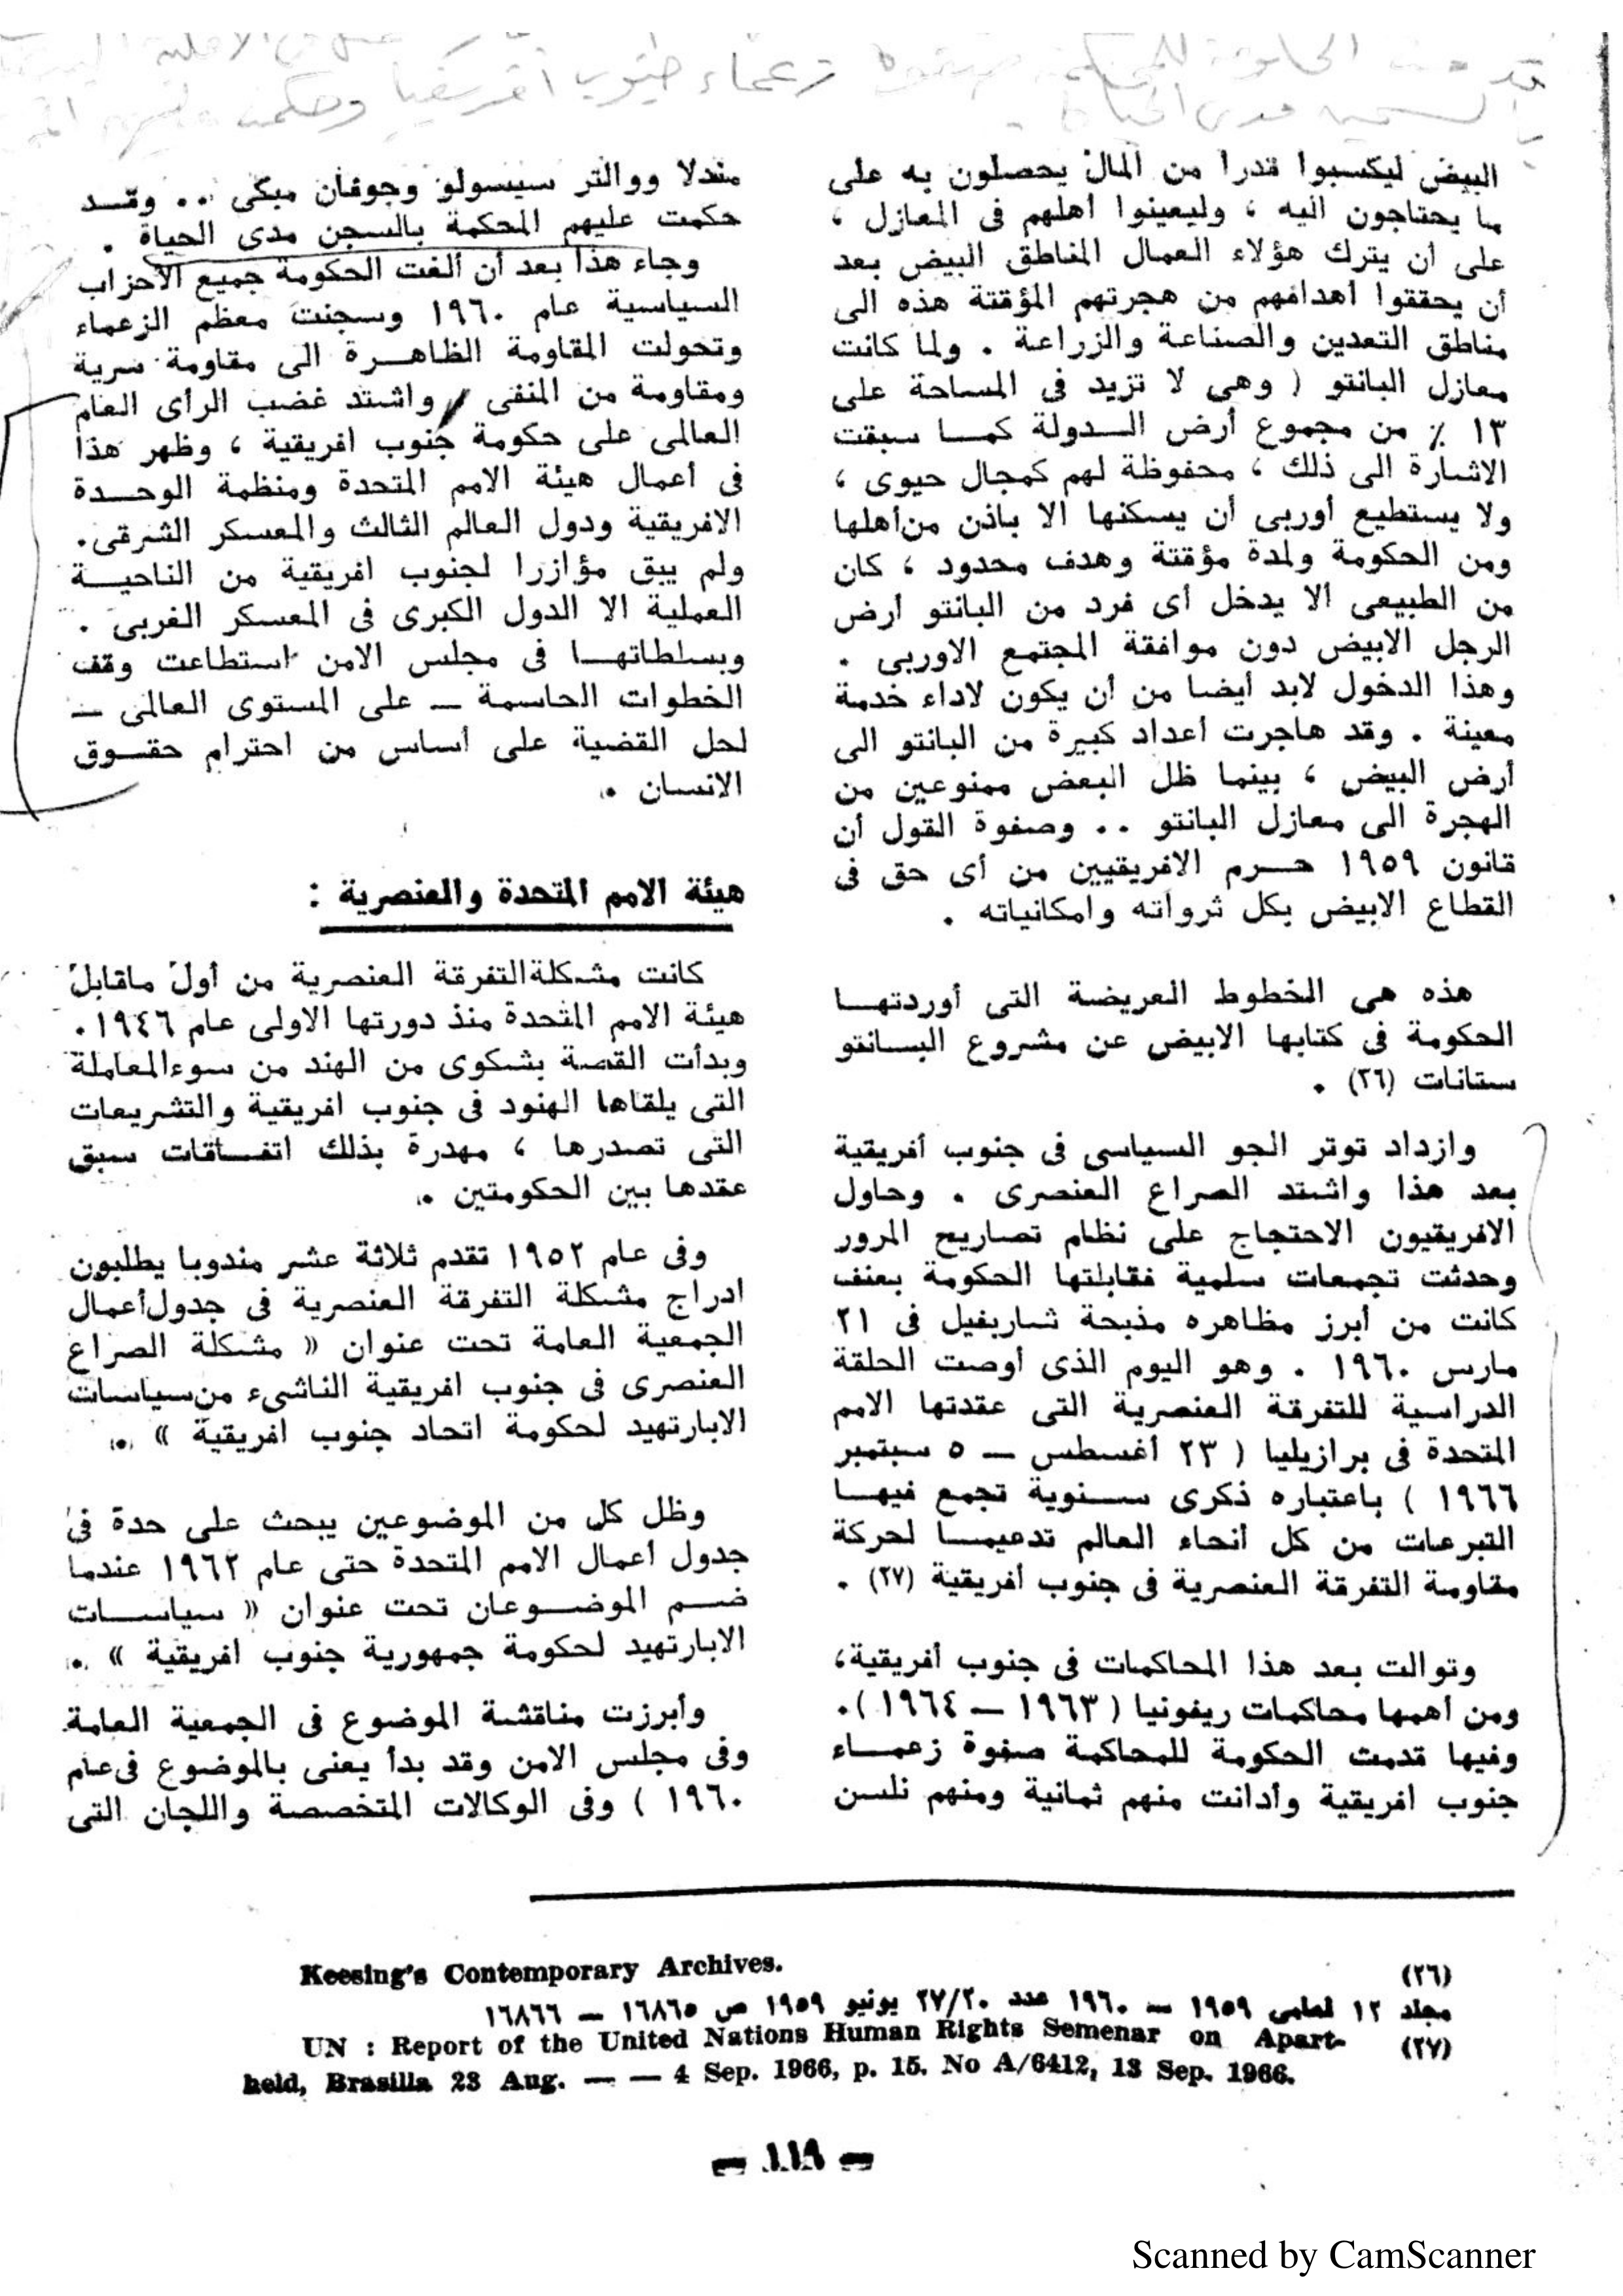 البيض ليكسبوا قدرا من المال يحصلون به على
ما يحتاجون اليه ، وليعينوا أهلهم فى المعازل ،
على أن يترك هؤلاء العمال المناطق البيض بعد
أن يحققوا أهدافهم من هجرتهم المؤقتة هذه الى
مناطق التعدين والصناعة والزراعة . ولما كانت
معازل البانتو ( وهى لا تزيد فى المساحة على
١٣ ٪ من مجموع أرض الدولة كما سبقت
الاشارة الى ذلك ، محفوظة لهم كمجال حيوى ،
ولا يستطيع أوربى أن يسكنها الا باذن من أهلها
ومن الحكومة ولمدة مؤقتة وهدف محدود ، كان
من الطبيعى ألا يدخل أى فرد من البانتو أرض
الرجل الابيض دون موافقة المجتمع الاوربى .
وهذا الدخول لابد أيضا من أن يكون لاداء خدمة
معينة . وقد هاجرت أعداد كبيرة من البانتو الى
أرض البيض ، بينما ظل البعض ممنوعين من
الهجرة الى معازل البانتو .. وصفوة القول أن
قانون ١٩٥٩ حرم الافريقيين من أى حق فى
القطاع الابيض بكل ثرواته وامكانياته .
هذه هى الخطوط العريضة التى أوردتها
الحكومة فى كتابها الابيض عن مشروع البسانتو
ستانات (٢٦) .
وازداد توتر الجو السياسى فى جنوب أفريقية
بعد هذا واشتد الصراع العنصرى . وحاول
الافريقيون الاحتجاج على نظام تصاريح المرور
وحدثت تجمعات سلمية فقابلتها الحكومة بعنف
كانت من أبرز مظاهره مذبحة شاربفيل فى ٢١
مارس ١٩٦٠ . وهو اليوم الذى أوصت الحلقة
الدراسية للتفرقة العنصرية التى عقدتها الامم
المتحدة فى برازيليا ( ٢٣ أغسطس — ٥ سبتمبر
١٩٦٦ ) باعتباره ذكرى سنوية تجمع فيها
التبرعات من كل أنحاء العالم تدعيما لحركة
مقاومة التفرقة العنصرية فى جنوب أفريقية (٢٧) .
وتوالت بعد هذا المحاكمات فى جنوب أفريقية،
ومن أهمها محاكمات ريفونيا ( ١٩٦٣ — ١٩٦٤ ).
وفيها قدمت الحكومة للمحاكمة صفوة زعماء
جنوب افريقية وأدانت منهم ثمانية ومنهم نلسن
مندلا ووالتر سيسولو وجوفان مبكى .. وقد
حكمت عليهم المحكمة بالسجن مدى الحياة .
وجاء هذا بعد أن ألغت الحكومة جميع الاحزاب
السياسية عام ١٩٦٠ وسجنت معظم الزعماء
وتحولت المقاومة الظاهرة الى مقاومة سرية
ومقاومة من المنفى واشتد غضب الرأى العام
العالمى على حكومة جنوب افريقية ، وظهر هذا
فى أعمال هيئة الامم المتحدة ومنظمة الوحدة
الافريقية ودول العالم الثالث والمعسكر الشرقى.
ولم يبق مؤازرا لجنوب افريقية من الناحية
العملية الا الدول الكبرى فى المعسكر الغربى .
وبسلطاتها فى مجلس الامن استطاعت وقف
الخطوات الحاسمة — على المستوى العالمى —
لحل القضية على أساس من احترام حقوق
الانسان .
هيئة الامم المتحدة والعنصرية :
كانت مشكلة التفرقة العنصرية من أول ماقابل
هيئة الامم المتحدة منذ دورتها الاولى عام ١٩٤٦.
وبدأت القصة بشكوى من الهند من سوء المعاملة
التى يلقاها الهنود فى جنوب افريقية والتشريعات
التى تصدرها ، مهدرة بذلك اتفاقات سبق
عقدها بين الحكومتين .
وفى عام ١٩٥٢ تقدم ثلاثة عشر مندوبا يطلبون
ادراج مشكلة التفرقة العنصرية فى جدول أعمال
الجمعية العامة تحت عنوان « مشكلة الصراع
العنصرى فى جنوب افريقية الناشىء من سياسات
الابارتهيد لحكومة اتحاد جنوب افريقية » .
وظل كل من الموضوعين يبحث على حدة فى
جدول أعمال الامم المتحدة حتى عام ١٩٦٢ عندما
ضم الموضوعان تحت عنوان « سياسات
الابارتهيد لحكومة جمهورية جنوب افريقية » .
وأبرزت مناقشة الموضوع فى الجمعية العامة
وفى مجلس الامن وقد بدأ يعنى بالموضوع فى عام
١٩٦٠ ) وفى الوكالات المتخصصة واللجان التى
(٢٦) Keesing's Contemporary Archives.
مجلد ١٢ لعامى ١٩٥٩ — ١٩٦٠ عدد ٢٧/٢٠ يونيو ١٩٥٩ ص ١٦٨٦٥ — ١٦٨٦٦
(٢٧) UN : Report of the United Nations Human Rights Semenar on Apart-
held, Brasilla 23 Aug. — — 4 Sep. 1966, p. 15. No A/6412, 13 Sep. 1966.
— ١١٩ —
Scanned by CamScanner